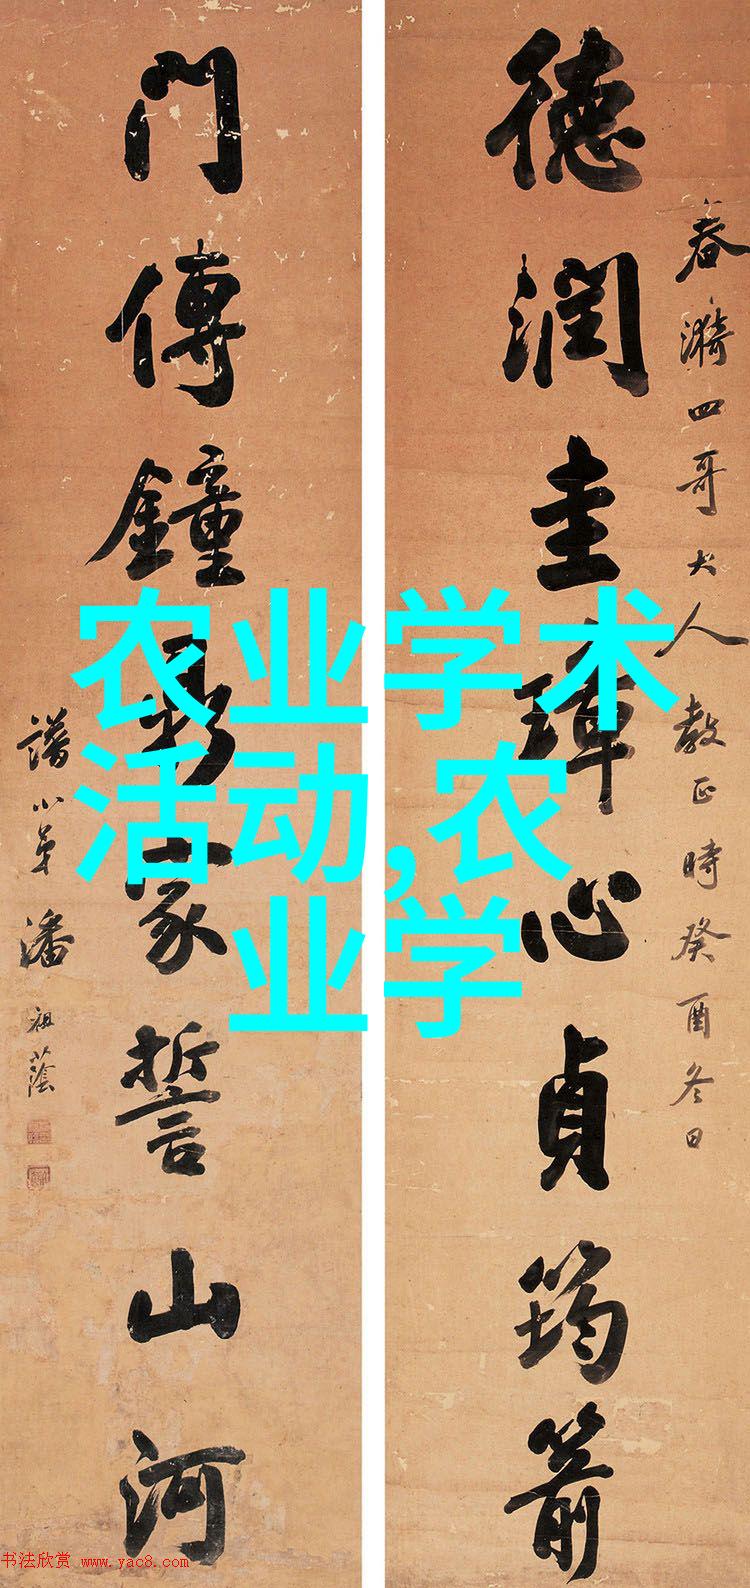 德潤圭璋心貞筠箭
春漪四哥大人教正時癸酉冬日
門傳鐘鼎家誓山河
譜小弟潘祖蔭
农业学术
活动,农
业学
书法欣赏 www.yac8.com